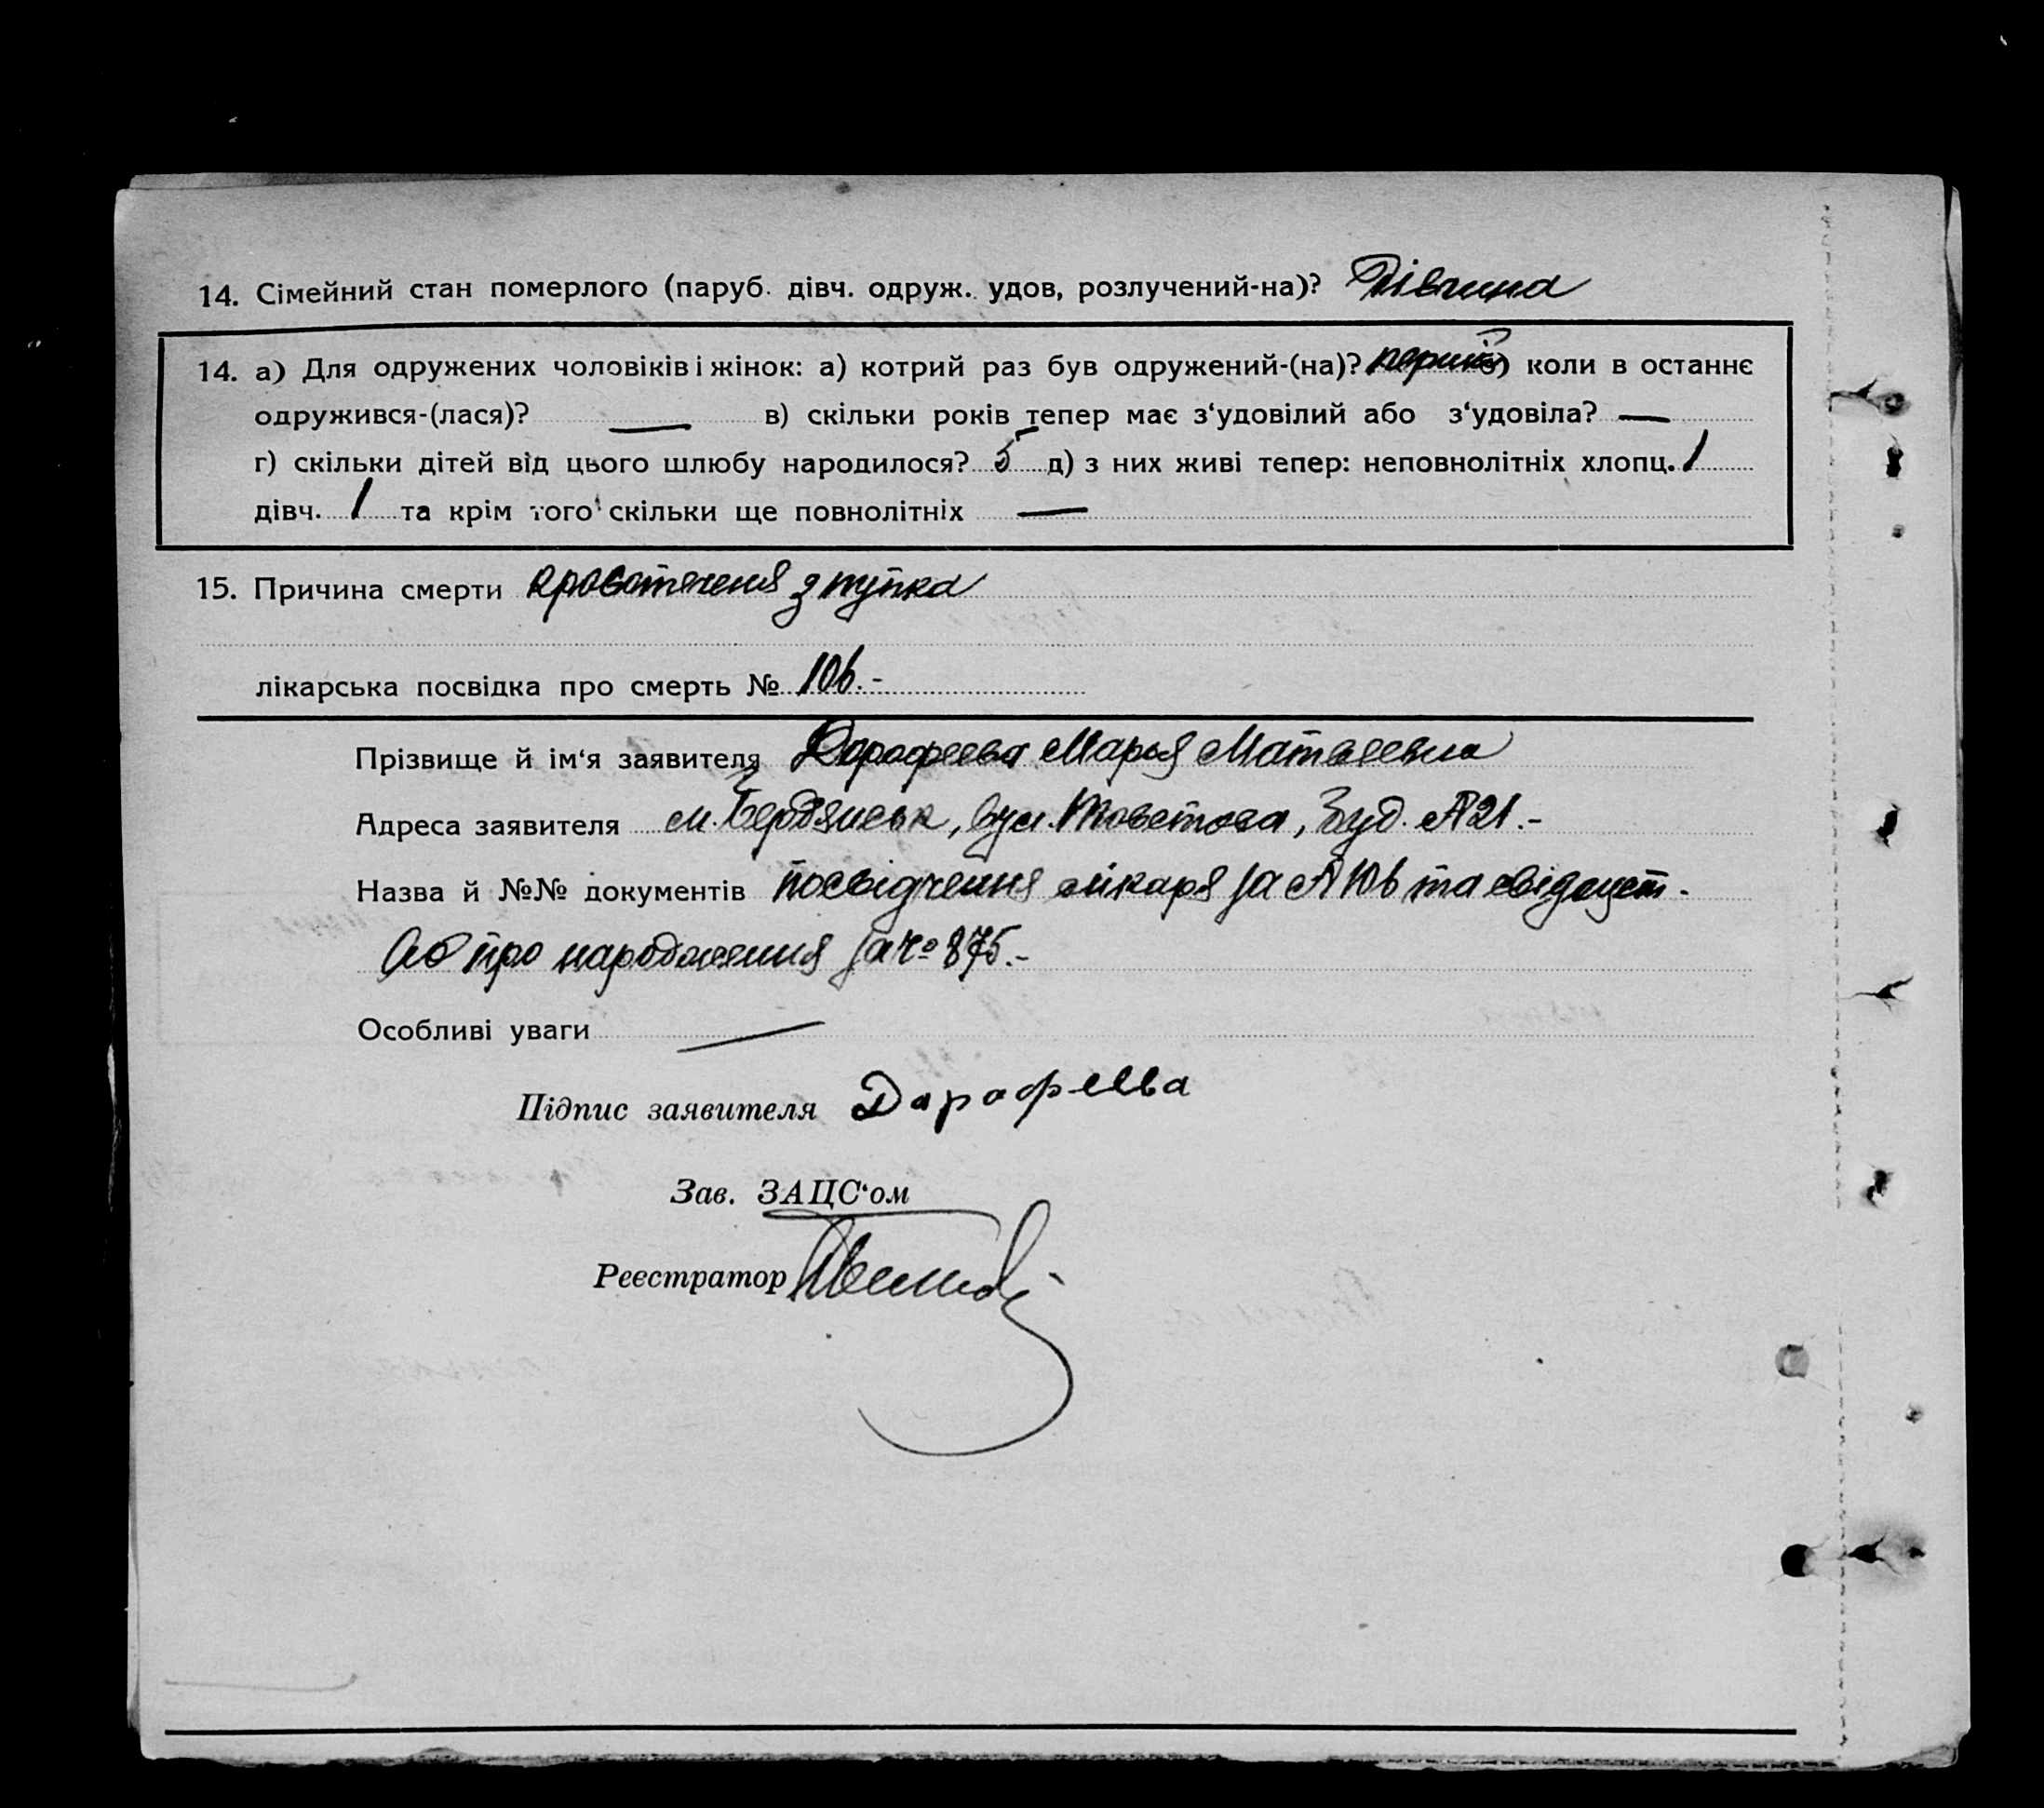 14. Сімейний стан померлого (паруб. дівч. одруж. удов, розлучений-на)? Дівчина
14. а) Для одружених чоловіків і жінок: а) котрий раз був одружений-(на)? перший б) коли в останнє
одружився-(лася)? — в) скільки років тепер має з‘удовілий або з‘удовіла? —
г) скільки дітей від цього шлюбу народилося? 5 д) з них живі тепер: неповнолітніх хлопц. 1
дівч. 1 та крім того скільки ще повнолітніх —
15. Причина смерти кровотеченя з пупка
лікарська посвідка про смерть № 106.-
Прізвище й ім‘я заявителя Дорофеева Марья Матвеевна
Адреса заявителя м. Бердянськ, вул. Товстого, Буд. №21.-
Назва й №№ документів посвідчення лікаря за №106 та свідоцт-
во про народження за № 875.-
Особливі уваги —
Підпис заявителя Дарафеева
Зав. ЗАЦС‘ом
Реєстратор